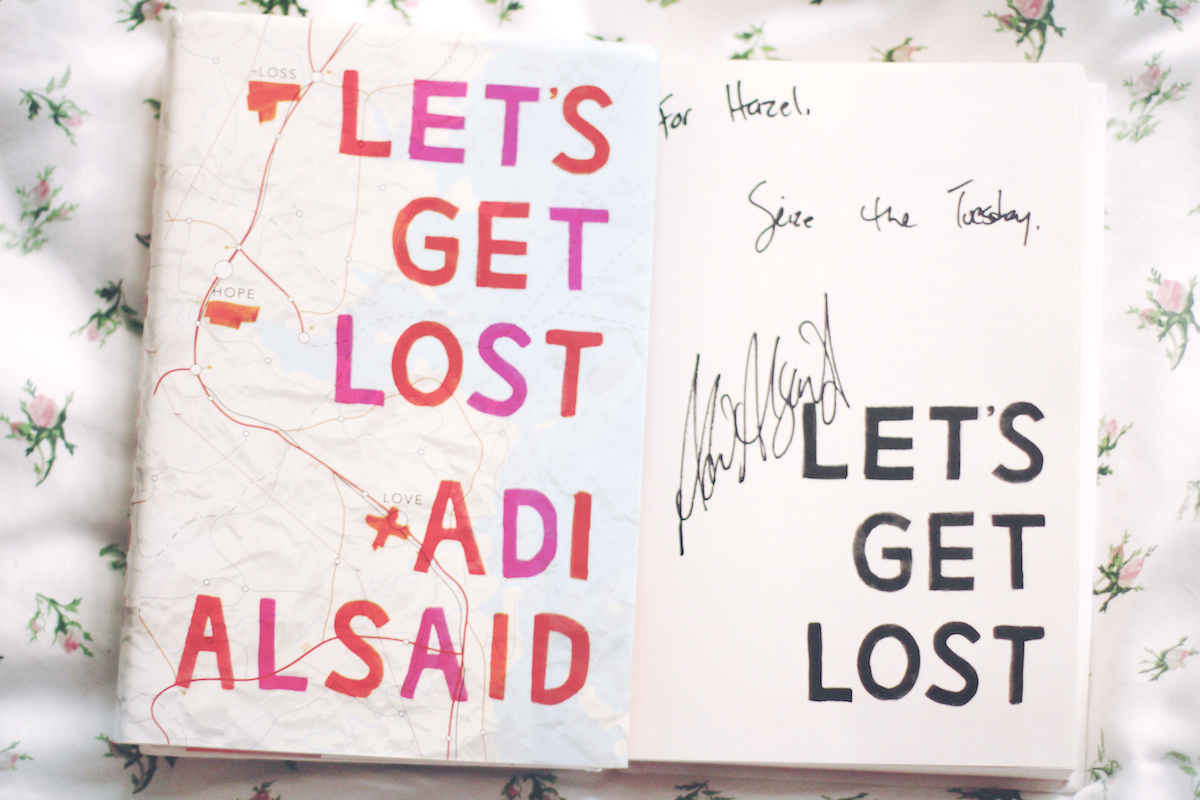 LOSS
LET'S
GET
HOPE
LOST
LOVE
ADI
ALSAID
For Hazel.
Seize the Tuesday.
Adi Alsaid
LET'S
GET
LOST